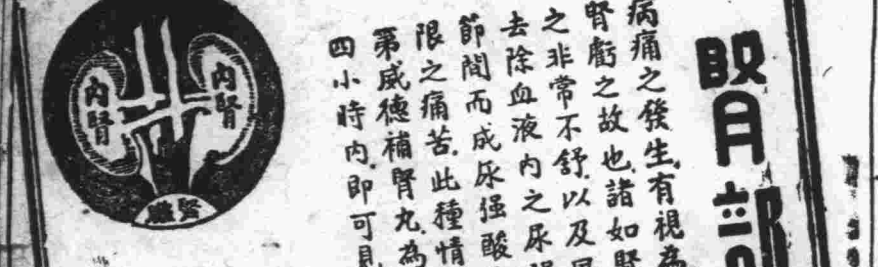 腎部
病痛之發生,有視為
腎虧之故也,諸如腎
之非常不舒,以及
去除血液內之尿
節間而成尿强酸
限之痛苦.此種情
第威德補腎丸,為
四小時內,即可見
內腎
內腎
腎臟